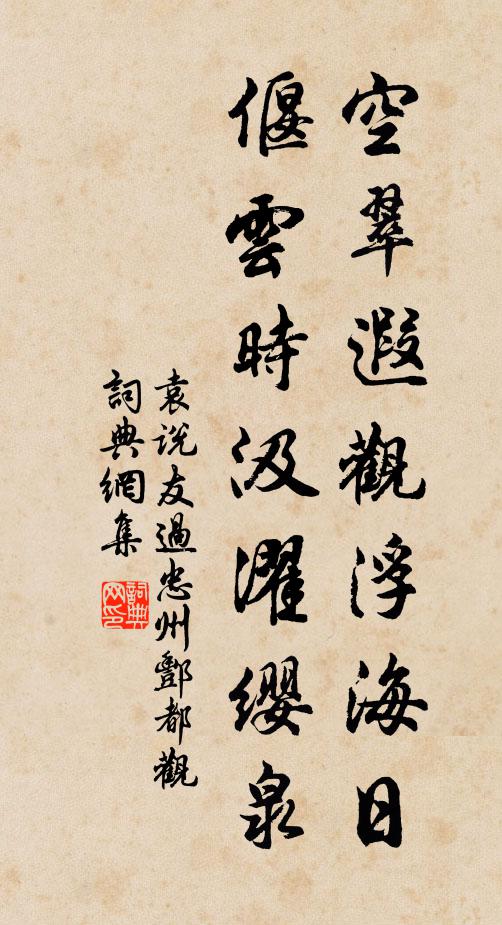 空翠遐觀浮海日
偃雲時汲濯纓泉
袁説友過忠州酆都觀
詞典網集
詞典網印